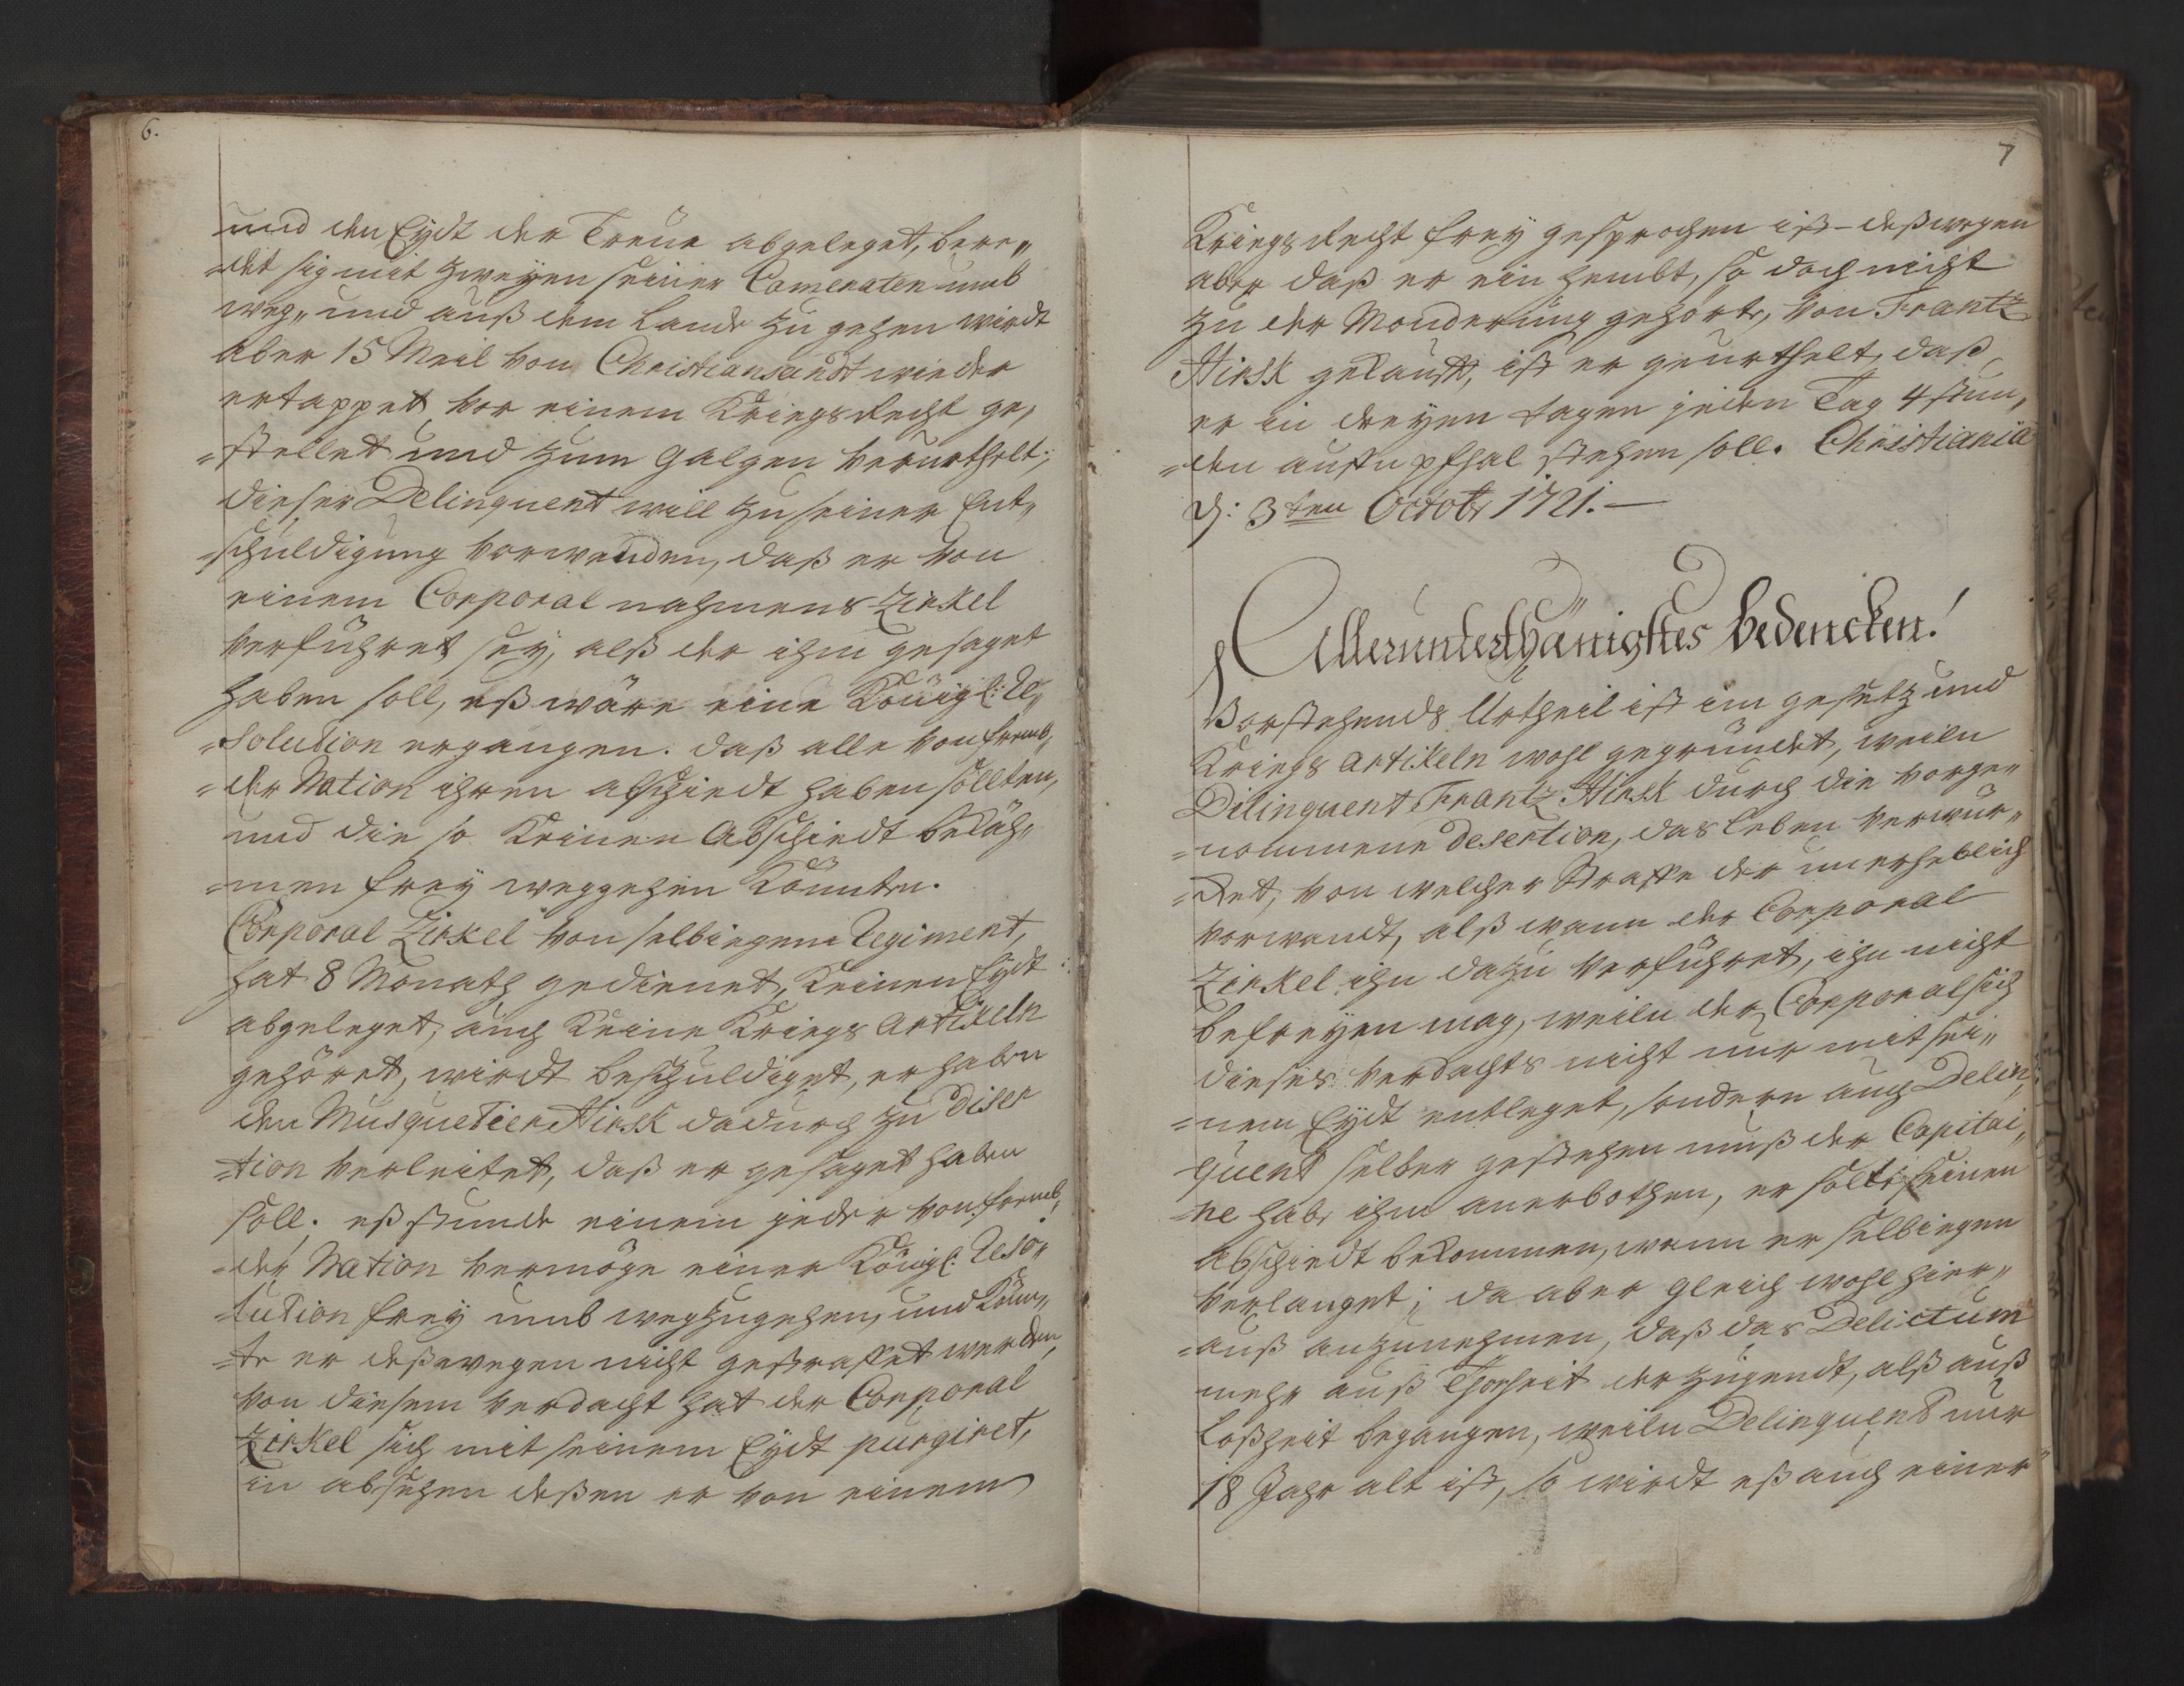 6.
und den Eydt der Treue abgeleget, bere„
=det sig mit zweyen seiner Cameraten umb
weg„ und auß dem Lande zu gehen wirdt
aber 15 Meil von Christiansandt wieder
ertappet vor einem KriegsRecht ge„
=stellet und zum Galgen verurthelt;
dieser Delinquent will zu seiner Ent„
=schuldigung vorwenden, daß er von
einem Corporal nahmens Zirkel
verführet sey, alß der ihm gesaget
haben soll, eß wäre eine Königl: Re„
=solution ergangen. daß alle von fremb„
=der Nation ihren abschiedt haben sollten,
und die so Keinen Abschiedt bekäh„
=men frey weggehen Könnten.
Corporal Zirkel von selbiegem Regiment,
hat 8 Monath gedienet, Keinen Eydt
abgeleget, auch Keine Kriegs Artikeln
gehöret, wirdt beschuldiget, er haben
den Musquetier Hirsk dadurch zu Diser
=tion verleitet, daß er gesaget haben
soll. eß stunde einem jeder von fremb„
=der Nation vermöge einer Königl: Reso„
=lution frey umb wegzugehen, und Kön„
=te er deßwegen nicht gestraffet werden,
von diesem verdacht hat der Corporal
Zirkel sich mit seinem Eydt purgiret,
in absehen deßen er von einem
7
KriegsRecht frey gesprochen ist – deßwegen
aber daß er ein hembt, so doch nicht
zu der Monderung gehörte, von Frantz
Hirsk gekaufft, ist er geurthelt, daß
er in dreyen tagen jeden Tag 4 stun„
=den auffn pfhal stehen soll. Christiania
d: 3ten Octobr 1721. –
Allerunterthänigstes bedencken!
Vorstehends Urtheil ist im gesetz und
Kriegs Artikeln wohl gegründet, weiln
Dilinquent Frantz Hirsk durch die vorge„
=nommene Desertion, das leben verwür„
=ket, von welcher Straffe der unerheblich
vorwandt, alß wann der Corporal
Zirkel ihn dazu verführet, ihn nicht
befreyen mag, weiln der Corporal sich
dieses verdachts nicht nur mit sei„
=nem Eydt entleget, sondern auch Delin„
quent selber gestehen muß der Capitai„
=ne habe ihm anerbothen, er solte seinen
abschiedt bekommen, wann er selbiegen
verlanget; da aber gleich wohl hier„
=auß anzunehmen, daß das Delictum
mehr auß Thorheit der Jugendt, alß auß
boßheit begangen, weiln Delinquent nur
18 Jahr alt ist, so wirdt eß auch einer